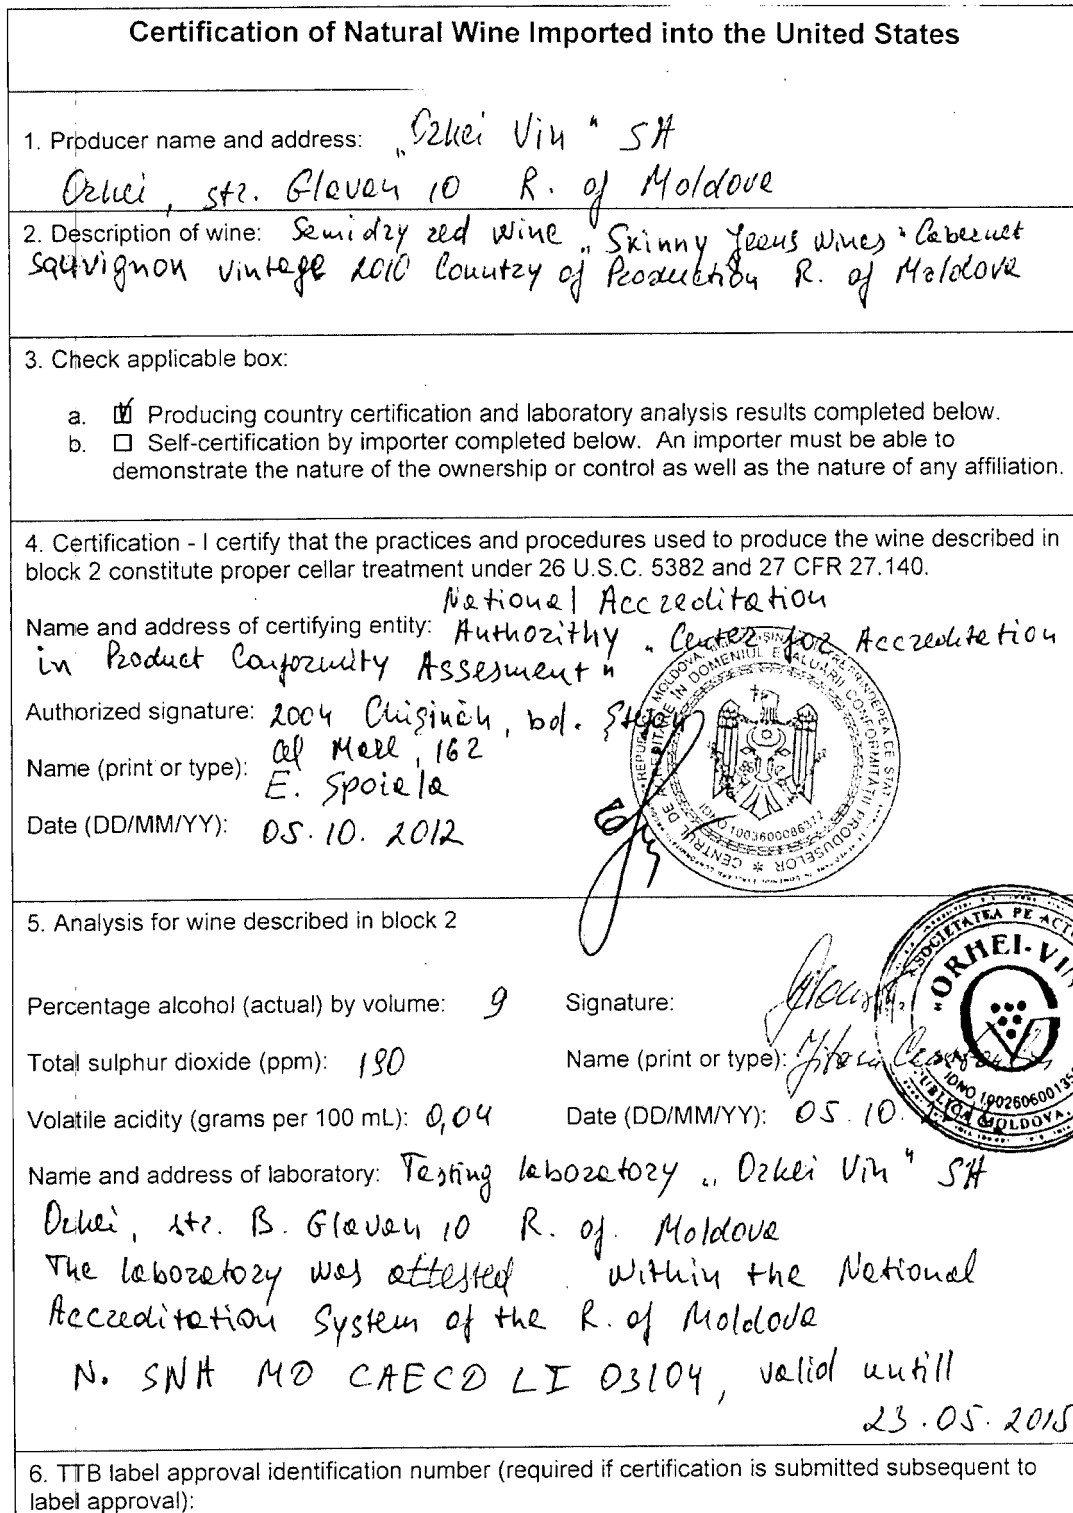 Certification of Natural Wine Imported into the United States
1. Producer name and address: „Orhei Vin" SA
Orhei, str. Glavan 10 R. of Moldova
2. Description of wine: Semidry red wine „Skinny Jeans Wines" Cabernet
Sauvignon vintage 2010 Country of Production R. of Moldova
3. Check applicable box:
a. ☑ Producing country certification and laboratory analysis results completed below.
b. ☐ Self-certification by importer completed below. An importer must be able to
demonstrate the nature of the ownership or control as well as the nature of any affiliation.
4. Certification - I certify that the practices and procedures used to produce the wine described in
block 2 constitute proper cellar treatment under 26 U.S.C. 5382 and 27 CFR 27.140.
National Accreditation
Name and address of certifying entity: Authorithy „Center for Accreditation
in Product Conformity Assesment"
Authorized signature: 2004 Chişinău, bd. Ştefan
cel Mare, 162
Name (print or type): E. Spoiala
Date (DD/MM/YY): 05.10.2012
CENTRUL DE ACREDITARE ÎN DOMENIUL EVALUĂRII CONFORMITĂȚII PRODUSELOR
IDNO 1003600086317
5. Analysis for wine described in block 2
Percentage alcohol (actual) by volume: 9 Signature:
Total sulphur dioxide (ppm): 190 Name (print or type):
Volatile acidity (grams per 100 mL): 0,04 Date (DD/MM/YY): 05.10.
SOCIETATEA PE ACȚ
"ORHEI-VIN
IDNO 100260600135
UBLICA MOLDOVA
Name and address of laboratory: Testing laboratory „Orhei Vin" SA
Orhei, str. B. Glavan 10 R. of. Moldova
The laboratory was attested within the National
Accreditation System of the R. of Moldova
N. SNA MD CAECD LI 03104, valid untill
23.05.2015
6. TTB label approval identification number (required if certification is submitted subsequent to
label approval):